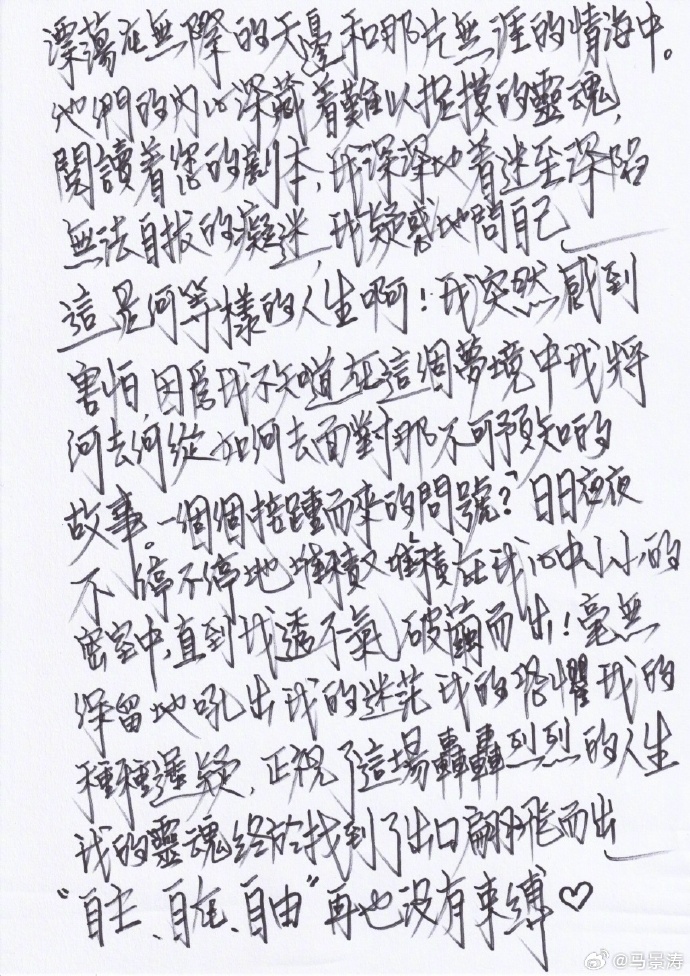 漂蕩在無際的天邊和那片無涯的情海中。
他們的內心深藏着難以捉摸的靈魂,
閱讀着您的劇本,我深深地着迷至深陷
無法自拔的癡迷,我疑惑地問自己
這是何等樣的人生啊!我突然感到
害怕,因爲我不知道在這個夢境中我將
何去何從如何去面對那不可預知的
故事。一個個接踵而來的問號?日日夜夜
不停不停地堆積又堆積在我心中小小的
密室中,直到我透不氣破繭而出!毫無
保留地吼出我的迷茫我的恐懼我的
種種遲疑,正視了這場轟轟烈烈的人生
我的靈魂終於找到了出口翩翩飛而出
"自主、自在、自由"再也没有束縛♡
@马景涛